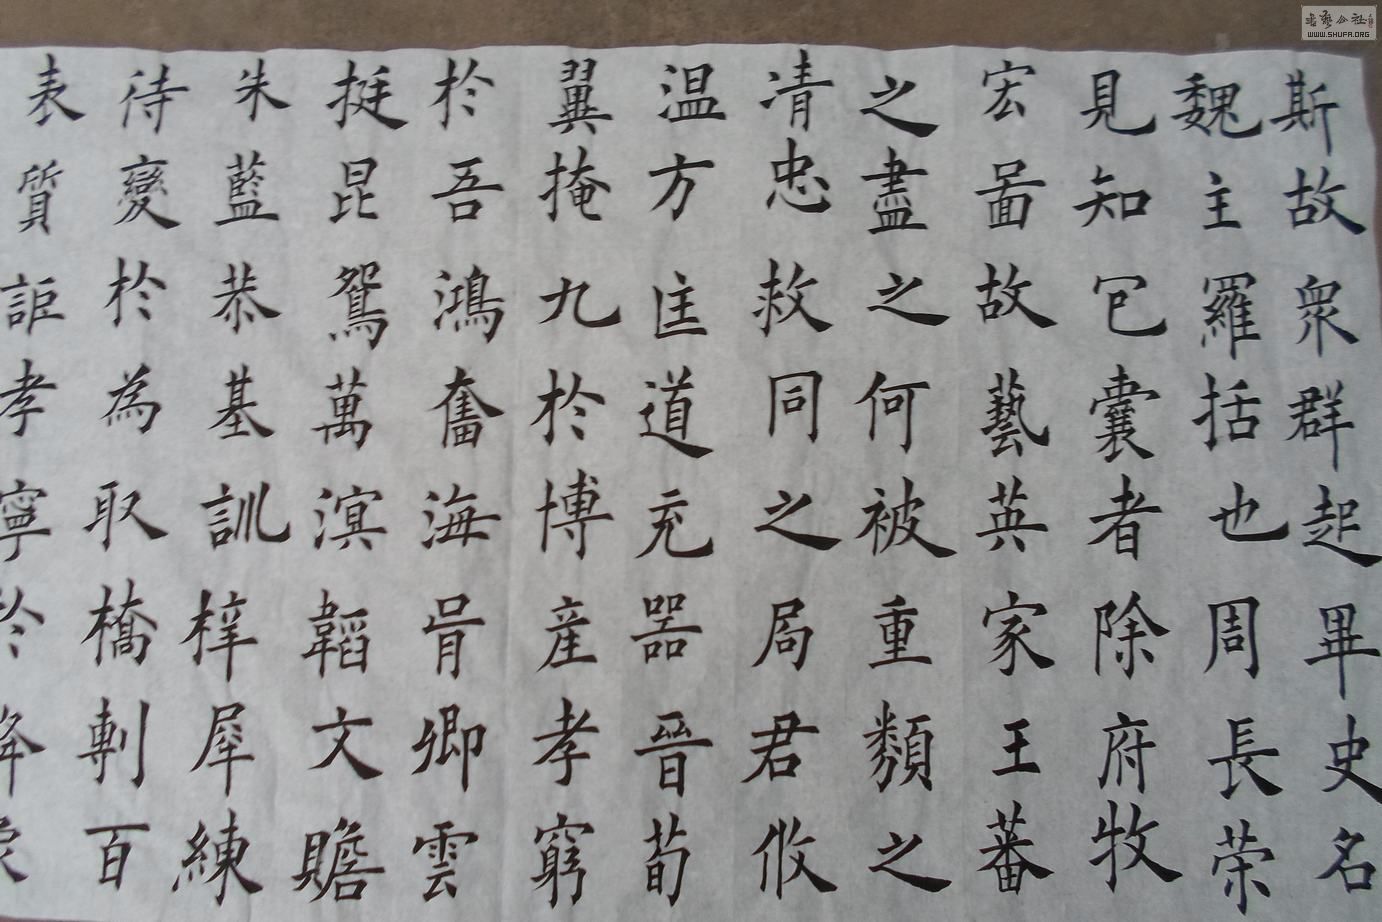 斯故衆群起畢史名
魏主羅括也周長荣
見知包囊者除府牧
宏啚故藝英家王蕃
之盡之何被重類之
清忠救同之局君攸
温方匡道充器晉荀
翼掩九於博産孝窮
於吾鴻奮海胥卿雲
挺昆鴛萬溟韜文贍
朱藍恭基訓梓犀練
待變於為取橋剸百
表質詎孝寧於降
書艺公社
WWW.SHUFA.ORG